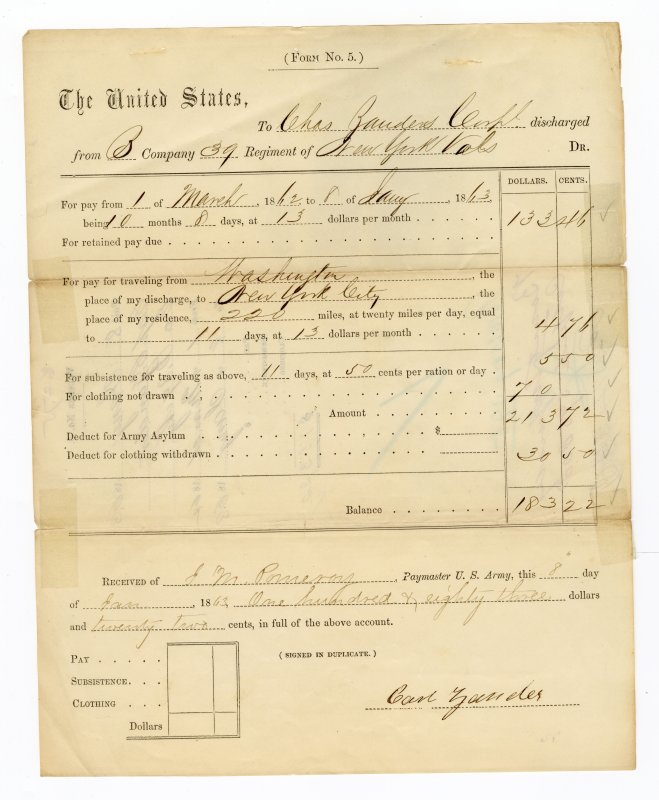 (Form No. 5.)
The United States,
To Chas Zanders Corpl discharged
from B Company 39 Regiment of New York Vols Dr.
DOLLARS. CENTS.
For pay from 1 of March, 1862 to 8 of Jany, 1863,
being 10 months 8 days, at 13 dollars per month 133 46
For retained pay due
For pay for traveling from Washington, the
place of my discharge, to New York City, the
place of my residence, 220 miles, at twenty miles per day, equal
to 11 days, at 13 dollars per month 4 76
For subsistence for traveling as above, 11 days, at 50 cents per ration or day 5 50
For clothing not drawn 70
Amount 213 72
Deduct for Army Asylum $
Deduct for clothing withdrawn 30 50
Balance 183 22
Received of J. M. Pomeroy, Paymaster U. S. Army, this 8 day
of Jan, 1863, One hundred & eighty three dollars
and twenty two cents, in full of the above account.
(SIGNED IN DUPLICATE.)
Pay
Subsistence
Clothing
Dollars
Carl Zander